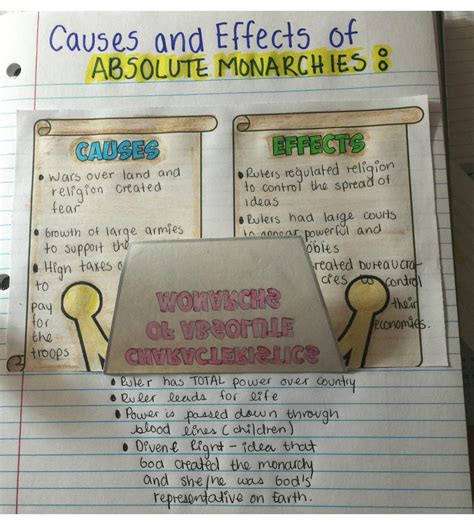 Causes and Effects of
ABSOLUTE MONARCHIES:
CAUSES
• Wars over land and
religion created
fear
• Growth of large armies
to support the
• High taxes
to
pay
for
the
troops
EFFECTS
• Rulers regulated religion
to control the spread of
ideas
• Rulers had large courts
to appear powerful and
reated bureaucra-
cies to control
their
economies.
CHARACTERISTICS
OF ABSOLUTE
MONARCHS
• Ruler has TOTAL power over country
• Ruler leads for life
• Power is passed down through
blood lines (children)
• Divene Right - idea that
God created the monarchy
and she/he was God's
representative on Earth.